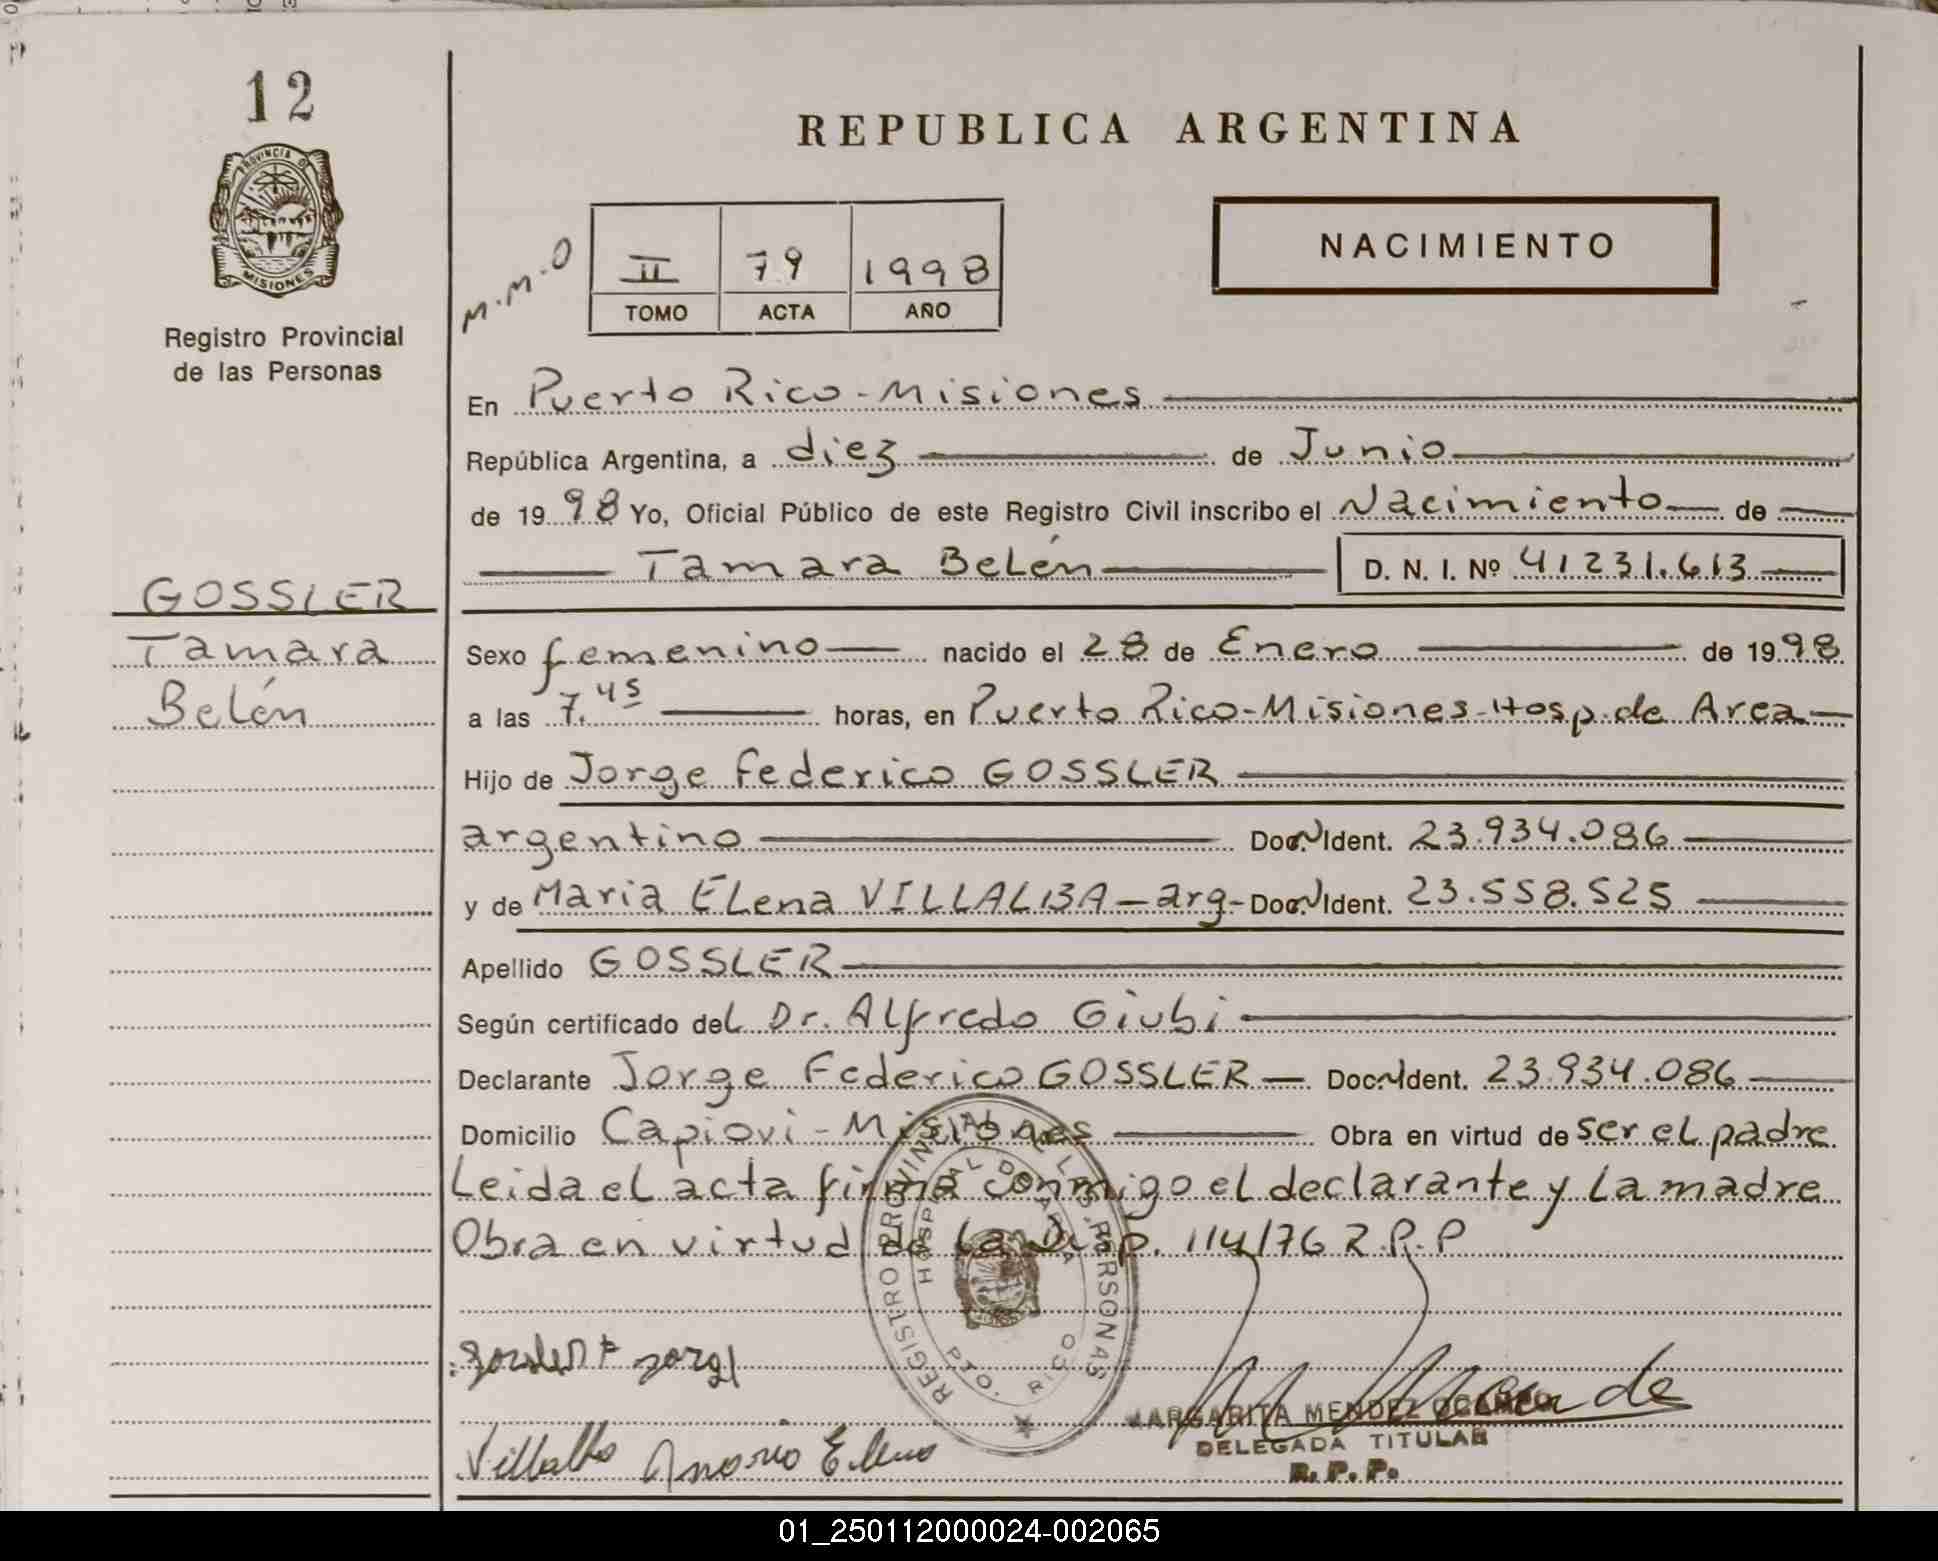 12
PROVINCIA DE
MISIONES
Registro Provincial
de las Personas
REPUBLICA ARGENTINA
NACIMIENTO
M.M.O
II 79 1998
TOMO ACTA AÑO
En Puerto Rico-Misiones
República Argentina, a diez de Junio
de 1998 Yo, Oficial Público de este Registro Civil inscribo el Nacimiento de
Tamara Belén D. N. I. Nº 41231.613
GOSSLER
Tamara
Belén
Sexo femenino nacido el 28 de Enero de 1998
a las 7.45 horas, en Puerto Rico-Misiones-Hosp.de Area
Hijo de Jorge Federico GOSSLER
argentino Doc.N Ident. 23.934.086
y de Maria ELena VILLALBA-arg-Doc.N Ident. 23.558.525
Apellido GOSSLER
Según certificado deL Dr. ALfredo Giubi
Declarante Jorge Federico GOSSLER Doc.N Ident. 23.934.086
Domicilio Capiovi-Misiones Obra en virtud de ser eL padre
Leida eL acta firma conmigo eL declarante y La madre
Obra en virtud de La Disp. 114/76 R.P.P
REGISTRO PROVINCIAL DE LAS PERSONAS
HOSPITAL DE AREA
PTO. RICO
Villalba Maria Elena
MARGARITA MENDEZ OCAMPO
DELEGADA TITULAR
R.P.P.
01_250112000024-002065